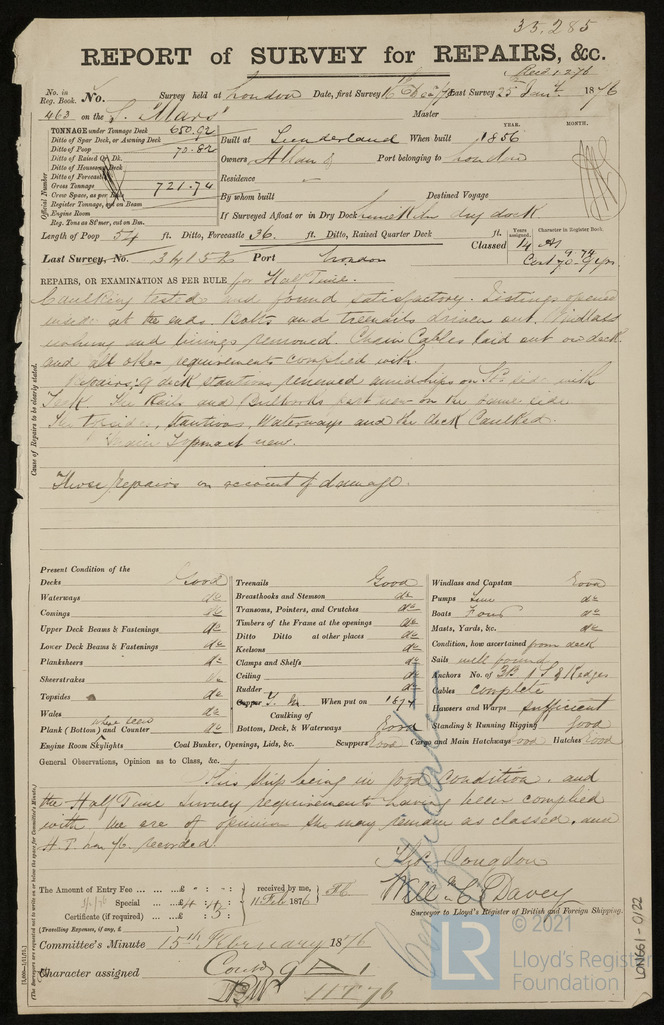 35.285
REPORT of SURVEY for REPAIRS, &c.
Recd 1.2.76
No. in Reg. Book. No. Survey held at London Date, first Survey 16 Decr 75 Last Survey 25 Jany 1876
463 on the S. "Mars" Master
TONNAGE under Tonnage Deck 650.92
Ditto of Spar Deck, or Awning Deck
Ditto of Poop 70.82
Ditto of Raised Qr. Dk.
Ditto of Houses on Deck
Ditto of Forecastle
Gross Tonnage 721.74
Crew Space, as per Rule
Register Tonnage, cut on Beam
Engine Room
Reg. Tons as St'mer, cut on Bm.
Official Number
YEAR. MONTH.
Built at Sunderland When built 1856
Owners Allan & Port belonging to London
Residence
By whom built Destined Voyage
If Surveyed Afloat or in Dry Dock dry dock
Length of Poop 54 ft. Ditto, Forecastle 36 ft. Ditto, Raised Quarter Deck ft.
Years assigned. Character in Register Book.
Classed 14 A1
Last Survey, No. 34152 Port London
Cont 70-9 yrs 9.74
REPAIRS, OR EXAMINATION AS PER RULE for Half Time.
Caulking tested and found satisfactory. Listings opened
at the ends. Bolts and treenails driven out. Windlass
and linings removed. Chain Cables laid out on deck
and all other requirements complied with.
Repairs; 9 deck stantions renewed amidships on Sts side with
Teak. The Rails and Bulworks part new on the same side
The Topsides, Stantions, Waterways and the deck Caulked.
Topmast new.
These repairs on account of damage.
Cause of Repairs to be clearly stated.
Present Condition of the
Decks Good
Waterways do
Comings do
Upper Deck Beams & Fastenings do
Lower Deck Beams & Fastenings do
Planksheers do
Sheerstrakes do
Topsides do
Wales do
Plank (Bottom) where seen and Counter do
Treenails Good
Breasthooks and Stemson do
Transoms, Pointers, and Crutches do
Timbers of the Frame at the openings do
Ditto Ditto at other places do
Keelsons do
Clamps and Shelfs do
Ceiling do
Rudder do
Copper Y. M. When put on 1874
Caulking of
Bottom, Deck, & Waterways Good
Windlass and Capstan Good
Pumps do
Boats Four do
Masts, Yards, &c. do
Condition, how ascertained from deck
Sails well found
Anchors No. of 3B 1 S & Kedges
Cables complete
Hawsers and Warps Sufficient
Standing & Running Rigging Good
Engine Room Skylights Coal Bunker, Openings, Lids, &c. Scuppers Good Cargo and Main Hatchways Good Hatches Good
General Observations, Opinion as to Class, &c.
This Ship being in good Condition, and
the Half Time Survey requirements having been complied
with we are of opinion she may remain as classed, and
H.T. Jan 76 recorded.
Congdon
Will C Davey
Surveyor to Lloyd's Register of British and Foreign Shipping.
The Amount of Entry Fee ... £ : : received by me,
Special ... £4 : 4 : 11 Feb 1876
Certificate (if required) ... : 5 :
(Travelling Expenses, if any, £ )
Committee's Minute 15th February 1876
Character assigned Contd 9 A 1
H T 76
Certificate
(The Surveyors are requested not to write on or below the space for Committee's Minute.)
LON661-0122
© 2021
LR
Lloyd's Register
Foundation